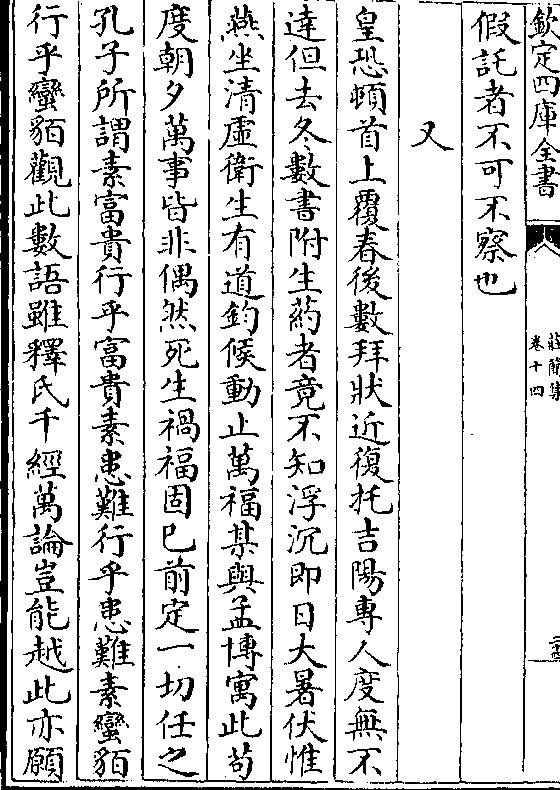 欽定四庫全書
莊簡集
卷十四
假託者不可不察也
又
皇恐頓首上覆春後數拜狀近復托吉陽專人度無不
達但去冬數書附生葯者竟不知浮沉即日大暑伏惟
燕坐清虛衛生有道鈞候動止萬福某與孟博寓此苟
度朝夕萬事皆非偶然死生禍福固已前定一切任之
孔子所謂素富貴行乎富貴素患難行乎患難素蠻貊
行乎蠻貊觀此數語雖釋氏千經萬論豈能越此亦願